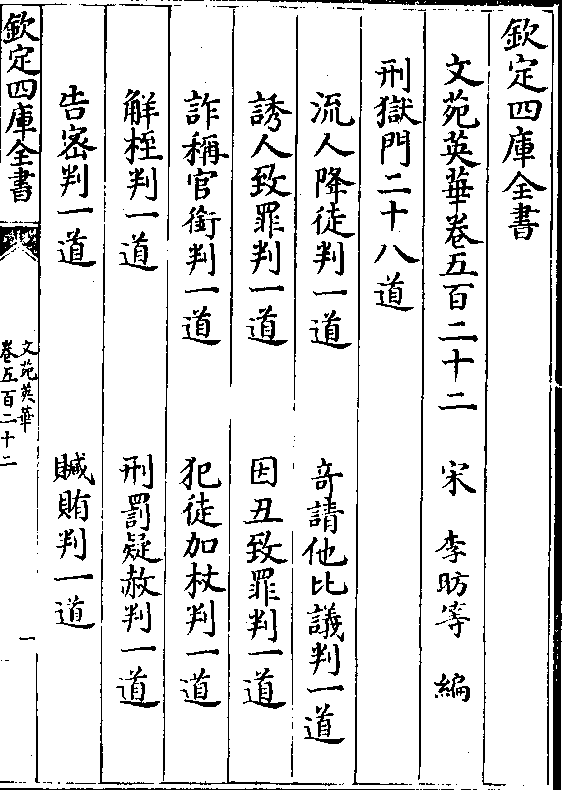 欽定四庫全書
文苑英華卷五百二十二　宋　李昉等　編
刑獄門二十八道
流人降徒判一道　奇請他比議判一道
誘人致罪判一道　因丑致罪判一道
詐稱官銜判一道　犯徒加杖判一道
解桎判一道　刑罰疑赦判一道
告密判一道　贓賄判一道
欽定四庫全書
文苑英華
卷五百二十二
一